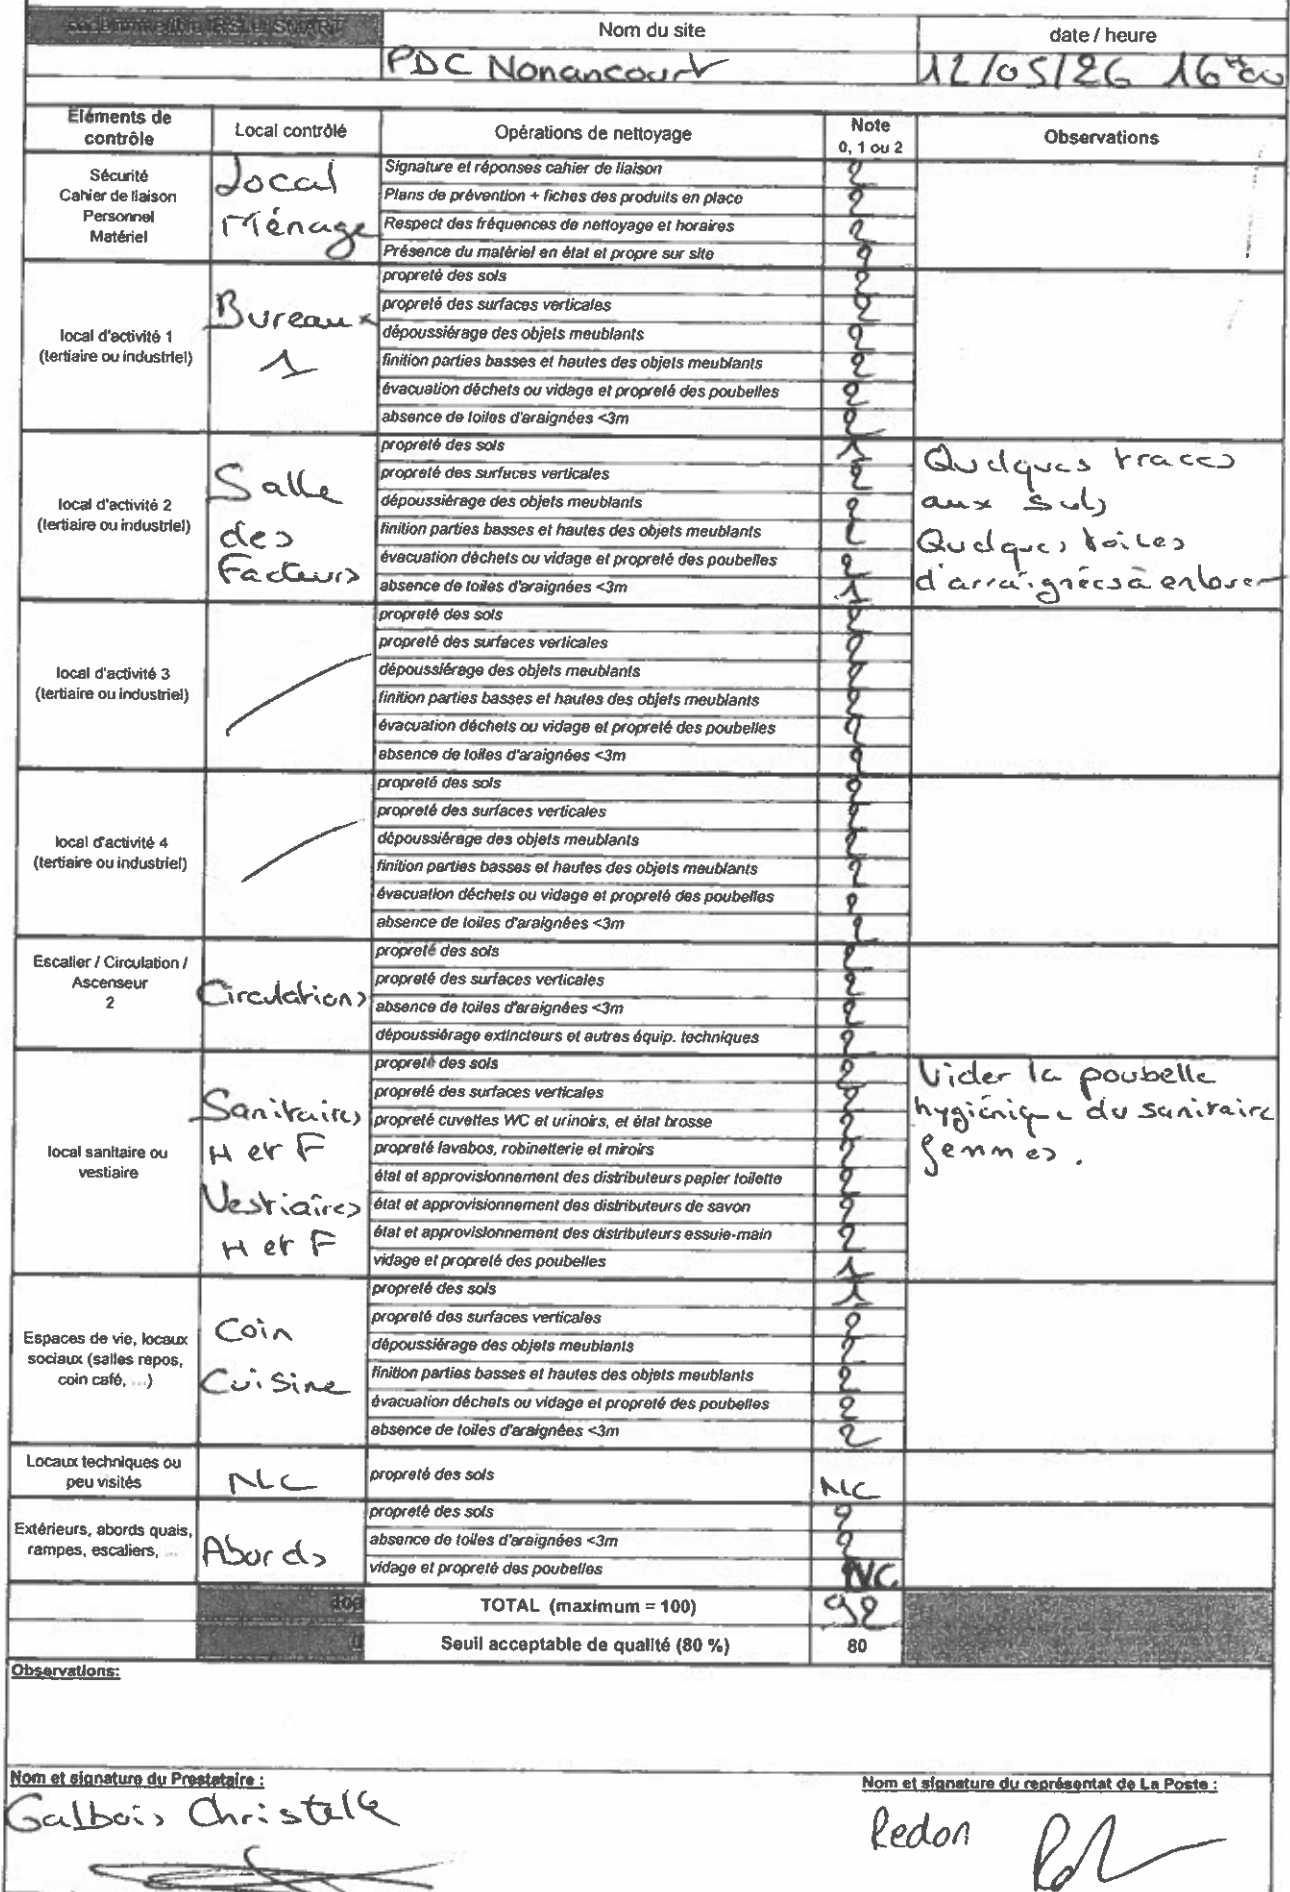 Nom du site
date / heure
PDC Nonancourt
12/05/26 16H00
Eléments de contrôle
Local contrôlé
Opérations de nettoyage
Note
0, 1 ou 2
Observations
Sécurité
Cahier de liaison
Personnel
Matériel
Local
Ménage
Signature et réponses cahier de liaison 2
Plans de prévention + fiches des produits en place 2
Respect des fréquences de nettoyage et horaires 2
Présence du matériel en état et propre sur site 2
local d'activité 1
(tertiaire ou industriel)
Bureaux
1
propreté des sols 2
propreté des surfaces verticales 2
dépoussiérage des objets meublants 2
finition parties basses et hautes des objets meublants 2
évacuation déchets ou vidage et propreté des poubelles 2
absence de toiles d'araignées <3m 2
local d'activité 2
(tertiaire ou industriel)
Salle
des
Facteurs
propreté des sols 1
propreté des surfaces verticales 2
dépoussiérage des objets meublants 2
finition parties basses et hautes des objets meublants 2
évacuation déchets ou vidage et propreté des poubelles 2
absence de toiles d'araignées <3m 1
Quelques traces
aux sols
Quelques toiles
d'arraignées à enlever
local d'activité 3
(tertiaire ou industriel)
propreté des sols 2
propreté des surfaces verticales 2
dépoussiérage des objets meublants 2
finition parties basses et hautes des objets meublants 2
évacuation déchets ou vidage et propreté des poubelles 2
absence de toiles d'araignées <3m 2
local d'activité 4
(tertiaire ou industriel)
propreté des sols 2
propreté des surfaces verticales 2
dépoussiérage des objets meublants 2
finition parties basses et hautes des objets meublants 2
évacuation déchets ou vidage et propreté des poubelles 2
absence de toiles d'araignées <3m 2
Escalier / Circulation /
Ascenseur
2
Circulations
propreté des sols 2
propreté des surfaces verticales 2
absence de toiles d'araignées <3m 2
dépoussiérage extincteurs et autres équip. techniques 2
local sanitaire ou
vestiaire
Sanitaires
H et F
Vestiaires
H et F
propreté des sols 2
propreté des surfaces verticales 2
propreté cuvettes WC et urinoirs, et état brosse 2
propreté lavabos, robinetterie et miroirs 2
état et approvisionnement des distributeurs papier toilette 2
état et approvisionnement des distributeurs de savon 2
état et approvisionnement des distributeurs essuie-main 2
vidage et propreté des poubelles 1
Vider la poubelle
hygiénique du sanitaire
femmes.
Espaces de vie, locaux
sociaux (salles repos,
coin café, ...)
Coin
Cuisine
propreté des sols 1
propreté des surfaces verticales 2
dépoussiérage des objets meublants 2
finition parties basses et hautes des objets meublants 2
évacuation déchets ou vidage et propreté des poubelles 2
absence de toiles d'araignées <3m 2
Locaux techniques ou
peu visités
NC
propreté des sols NC
Extérieurs, abords quais,
rampes, escaliers, ...
Abords
propreté des sols 2
absence de toiles d'araignées <3m 2
vidage et propreté des poubelles NC
TOTAL (maximum = 100) 92
Seuil acceptable de qualité (80 %) 80
Observations:
Nom et signature du Prestataire :
Galbois Christelle
Nom et signature du représentat de La Poste :
Redon